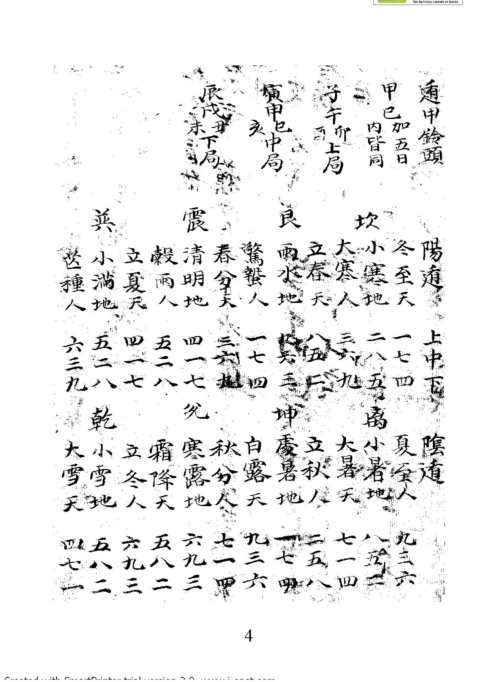 遁甲鈴頭
甲己加五日
内皆同
子午卯上局
寅甲巳中局
亥
辰戌丑
未下局
陽道 上中下 陰道
坎 冬至天 一七四 夏至人 九三六
小寒地 二八五 离 小暑地 八五二
大寒人 三六九 大暑天 七一四
立春天 八五二 立秋人 二五八
艮 雨水地 九六三 坤 處暑地 一七四
驚蟄人 一七四 白露天 九三六
春分天 三六九 秋分人 七一四
震 清明地 四一七 兊 寒露地 六九三
穀雨人 五二八 霜降天 五八二
立夏天 四一七 立冬人 六九三
巽 小滿地 五二八 乾 小雪地 五八二
芒種人 六三九 大雪天 四七一
4
Created with SmartPrinter trial version 2.0 www.i-enet.com